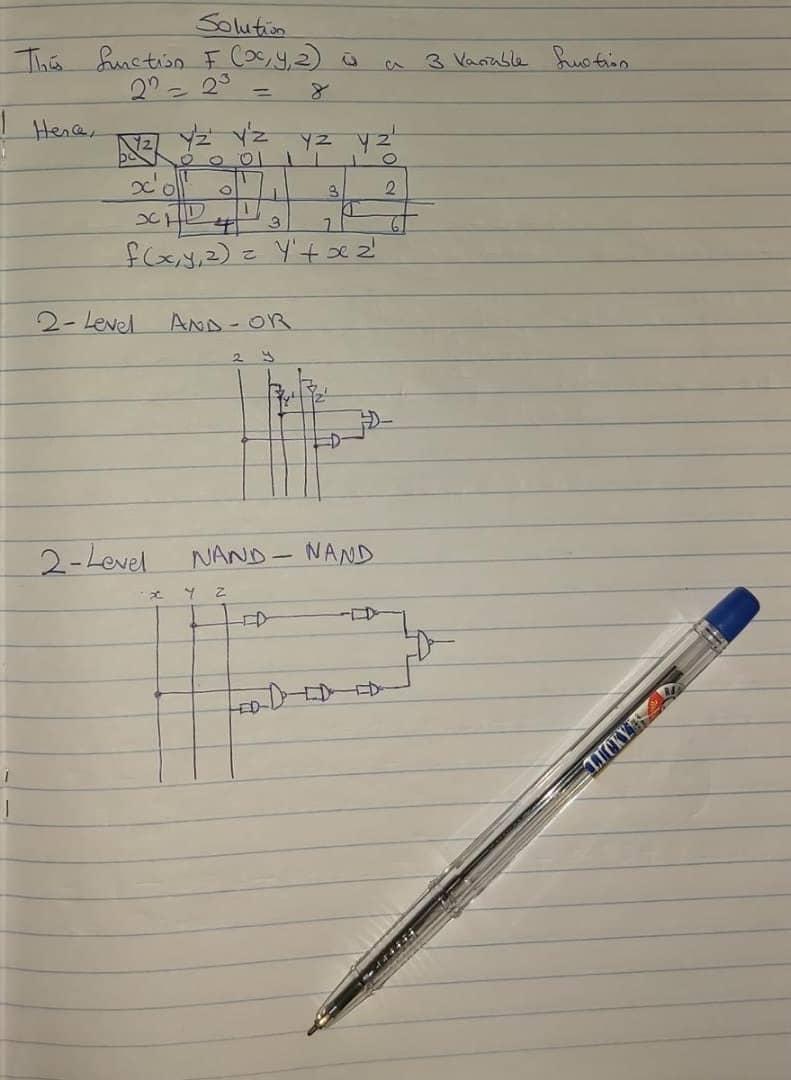 Solution
This function F (x,y,z) is a 3 Variable function
2ⁿ = 2³ = 8
Hence,
yz y'z' y'z yz yz'
x 0 0 01 1 1 1 0
x' 0 1 0 1 1 3 2
x 1 1 4 1 3 7 1 6
f(x,y,z) = y' + x z'
2-Level AND-OR
z y
y' z'
2-Level NAND - NAND
x y z